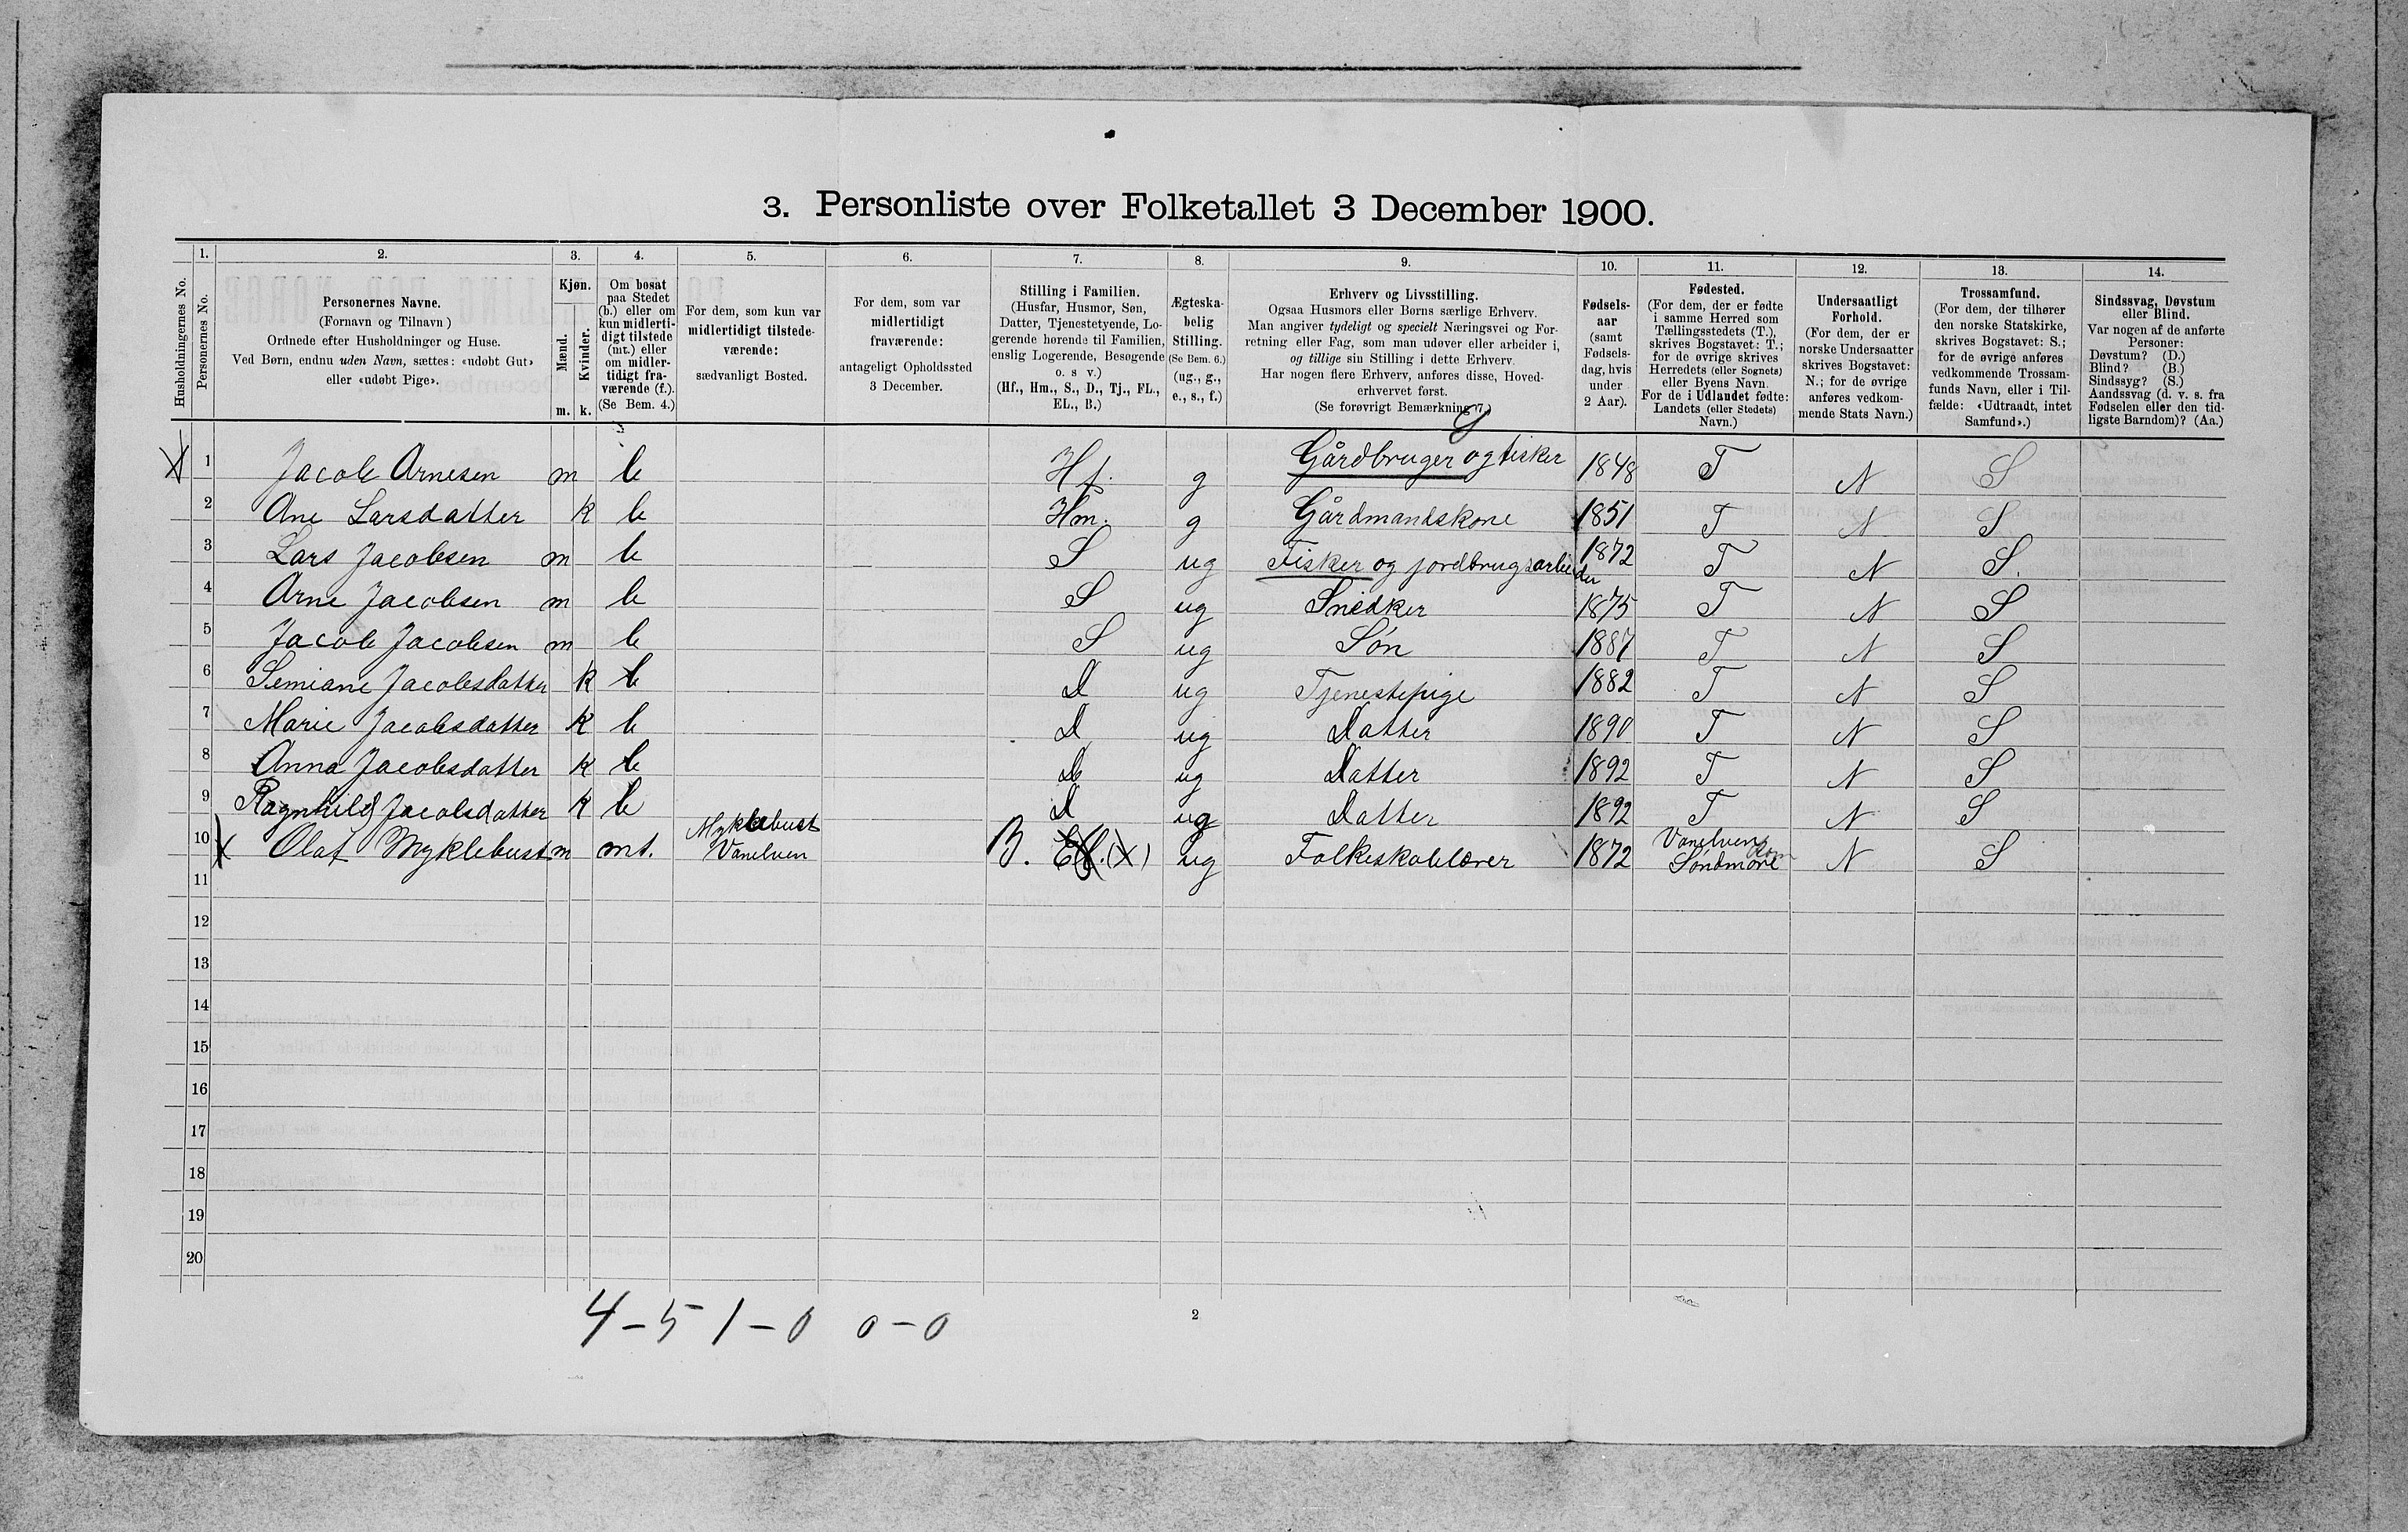 3. Personliste over Folketallet 3 December 1900.
1. 2. 3. 4. 5. 6. 7. 8. 9. 10. 11. 12. 13. 14.
Husholdningernes No.
Personernes No.
Personernes Navne.
(Fornavn og Tilnavn)
Ordnede efter Husholdninger og Huse.
Ved Børn, endnu uden Navn, sættes: «udøbt Gut»
eller «udøbt Pige».
Kjøn.
Mænd.
Kvinder.
m. k.
Om bosat
paa Stedet
(b.) eller om
kun midlerti-
digt tilstede
(mt.) eller
om midler-
tidigt fra-
værende (f.).
(Se Bem. 4.)
For dem, som kun var
midlertidigt tilstede-
værende:
sædvanligt Bosted.
For dem, som var
midlertidigt
fraværende:
antageligt Opholdssted
3 December.
Stilling i Familien.
(Husfar, Husmor, Søn,
Datter, Tjenestetyende, Lo-
gerende hørende til Familien,
enslig Logerende, Besøgende
o. s v.)
(Hf., Hm., S., D., Tj., FL.,
EL., B.)
Ægteska-
belig
Stilling.
(Se Bem. 6.)
(ug., g.,
e., s., f.)
Erhverv og Livsstilling.
Ogsaa Husmors eller Børns særlige Erhverv.
Man angiver tydeligt og specielt Næringsvei og For-
retning eller Fag, som man udøver eller arbeider i,
og tillige sin Stilling i dette Erhverv.
Har nogen flere Erhverv, anføres disse, Hoved-
erhvervet først.
(Se forøvrigt Bemærkning 7.)
Fødsels-
aar
(samt
Fødsels-
dag, hvis
under
2 Aar).
Fødested.
(For dem, der er fødte
i samme Herred som
Tællingsstedets (T.),
skrives Bogstavet: T.;
for de øvrige skrives
Herredets (eller Sognets)
eller Byens Navn.
For de i Udlandet fødte:
Landets (eller Stedets)
Navn.)
Undersaatligt
Forhold.
(For dem, der er
norske Undersaatter
skrives Bogstavet:
N.; for de øvrige
anføres vedkom-
mende Stats Navn.)
Trossamfund.
(For dem, der tilhører
den norske Statskirke,
skrives Bogstavet: S.;
for de øvrige anføres
vedkommende Trossam-
funds Navn, eller i Til-
fælde: «Udtraadt, intet
Samfund».)
Sindssvag, Døvstum
eller Blind.
Var nogen af de anførte
Personer:
Døvstum? (D.)
Blind? (B.)
Sindssyg? (S.)
Aandssvag (d. v. s. fra
Fødselen eller den tid-
ligste Barndom)? (Aa.)
X 1 Jacob Arnesen m b Hf. g Gårdbruger og fisker 1848 T N S
2 Ane Larsdatter k b Hm. g Gårdmandskone 1851 T N S
3 Lars Jacobsen m b S ug Fisker og jordbrugsarbeider 1872 T N S.
4 Arne Jacobsen m b S ug Snedker 1875 T N S
5 Jacob Jacobsen m b S ug Søn 1887 T N S
6 Semiane Jacobsdatter k b D ug Tjenestepige 1882 T N S
7 Marie Jacobsdatter k b D ug Datter 1890 T N S
8 Anna Jacobsdatter k b D ug Datter 1892 T N S
9 Ragnhild Jacobsdatter k b D ug Datter 1892 T N S
10 X Olaf Myklebust m mt. Myklebust Vanelven B. EL. (X) ug Folkeskolelærer 1872 Vanelven Søndmøre N S
11
12
13
14
15
16
17
18
19
20
4 – 5 1 – 0 0 – 0
2